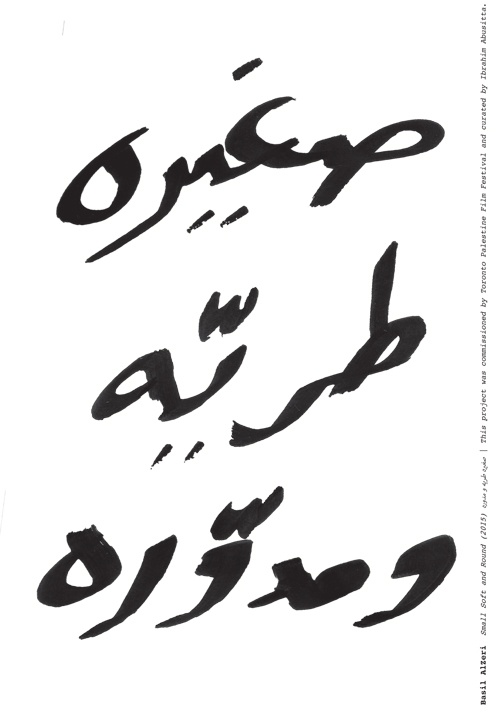 صغيره
طريّه
ومدوّره
Basil AlZeri Small Soft and Round (2015) صغيرة طرية و مدورة | This project was commissioned by Toronto Palestine Film Festival and curated by Ibrahim Abusitta.